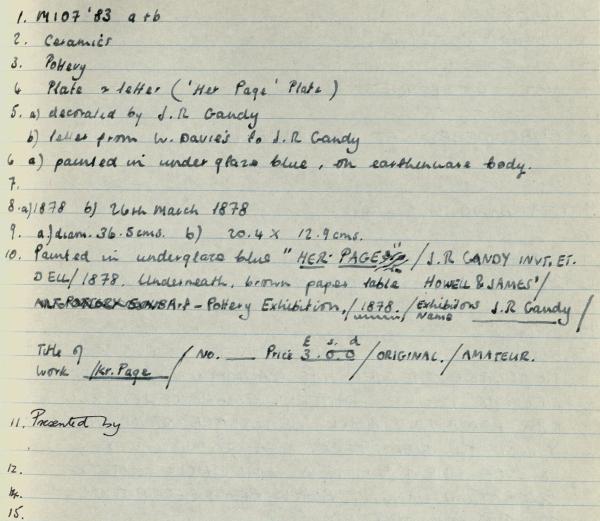 1. M107 '83 a+b
2. Ceramics
3. Pottery
4 Plate & letter ('Her Page' Plate)
5. a) decorated by J.R Gandy
b) letter from W. Davies to J.R Gandy
6 a) painted in underglaze blue, on earthenware body.
7.
8. a) 1878 b) 26th March 1878
9. a) diam. 36.5cms. b) 20.4 x 12.9cms.
10. Painted in underglaze blue "HER PAGE" / J.R GANDY INVT. ET.
DELL/1878. Underneath, brown paper table HOWELL & JAMES'/
Art-Pottery Exhibition,/1878./Exhibitors Name J.R Gandy/
Title of work /Kr. Page / NO. __ Price £ s. d 3.0.0/ORIGINAL./AMATEUR.
11. Presented by
12.
14.
15.